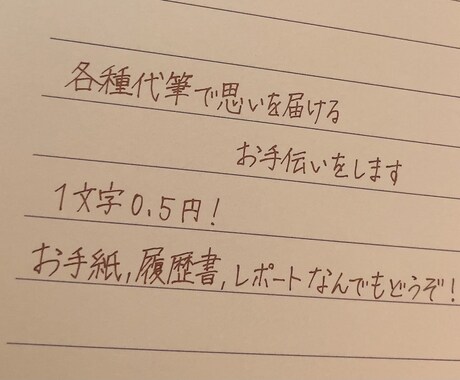 各種代筆で思いを届ける
お手伝いをします
1文字0.5円!
お手紙,履歴書,レポートなんでもどうぞ!